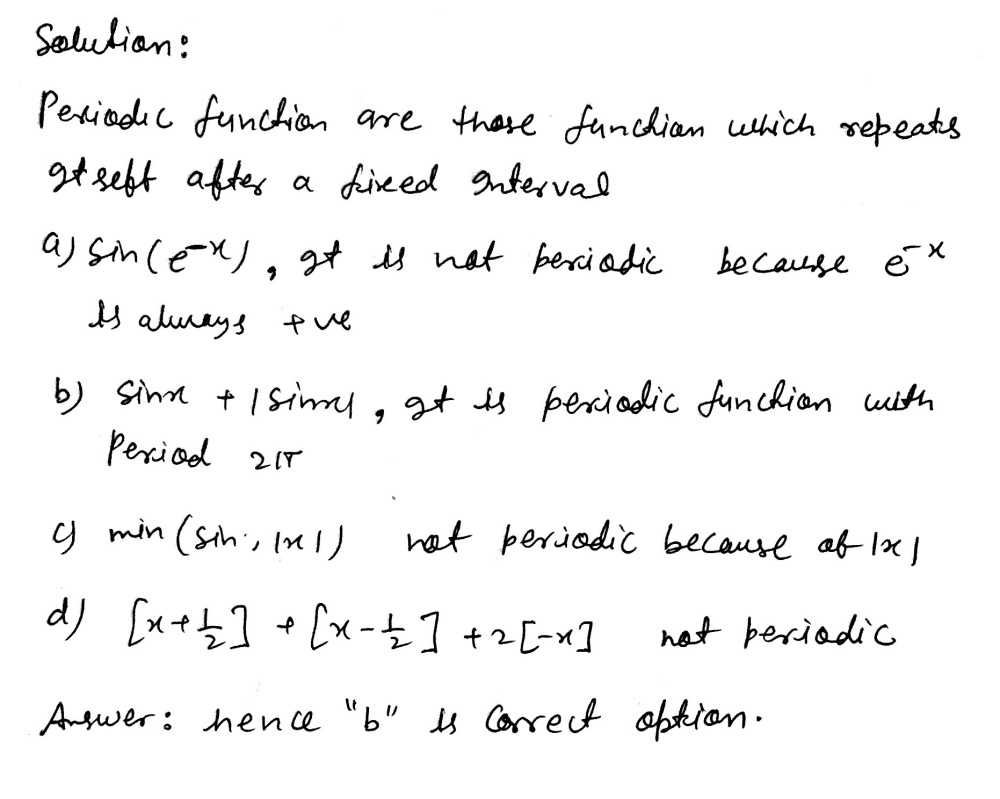 Solution:
Periodic function are those function which repeats
It self after a fixed Interval
a) Sin(e^-x), It is not periodic because e^-x
is always +ve
b) Sinx + |Sinx|, It is periodic function with
Period 2π
c) min (Sin., |x|) not periodic because of |x|
d) [x+1/2] + [x-1/2] + 2[-x] not periodic
Answer: hence "b" is Correct option.